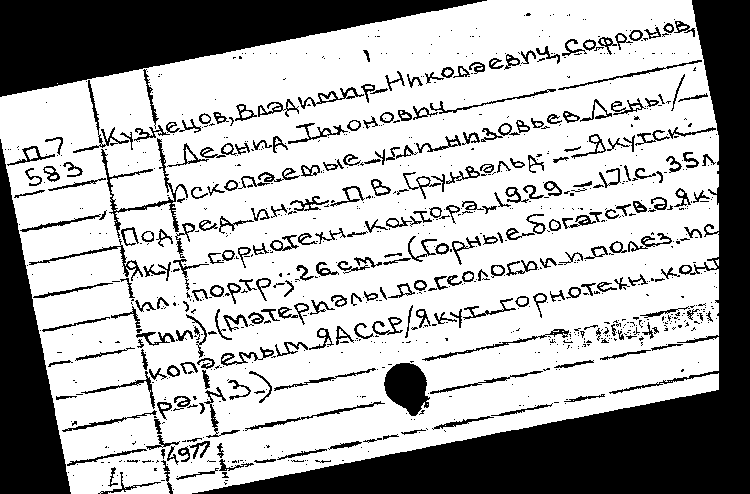 П.7
583
Кузнецов, Владимир Николаевич, Софронов,
Леонид Тихонович
Ископаемые угли низовьев Лены /
Под ред. инж. П.В. Грунвельд; – Якутск:
Якут. горнотехн. контора, 1929. – 171с., 35л.
ил., портр.; 26см. – (Горные богатства Яку
тии) (материалы по геологии и полез. ис
копаемым ЯАССР/Якут. горнотехн. конт
ра; N3)
4977
4